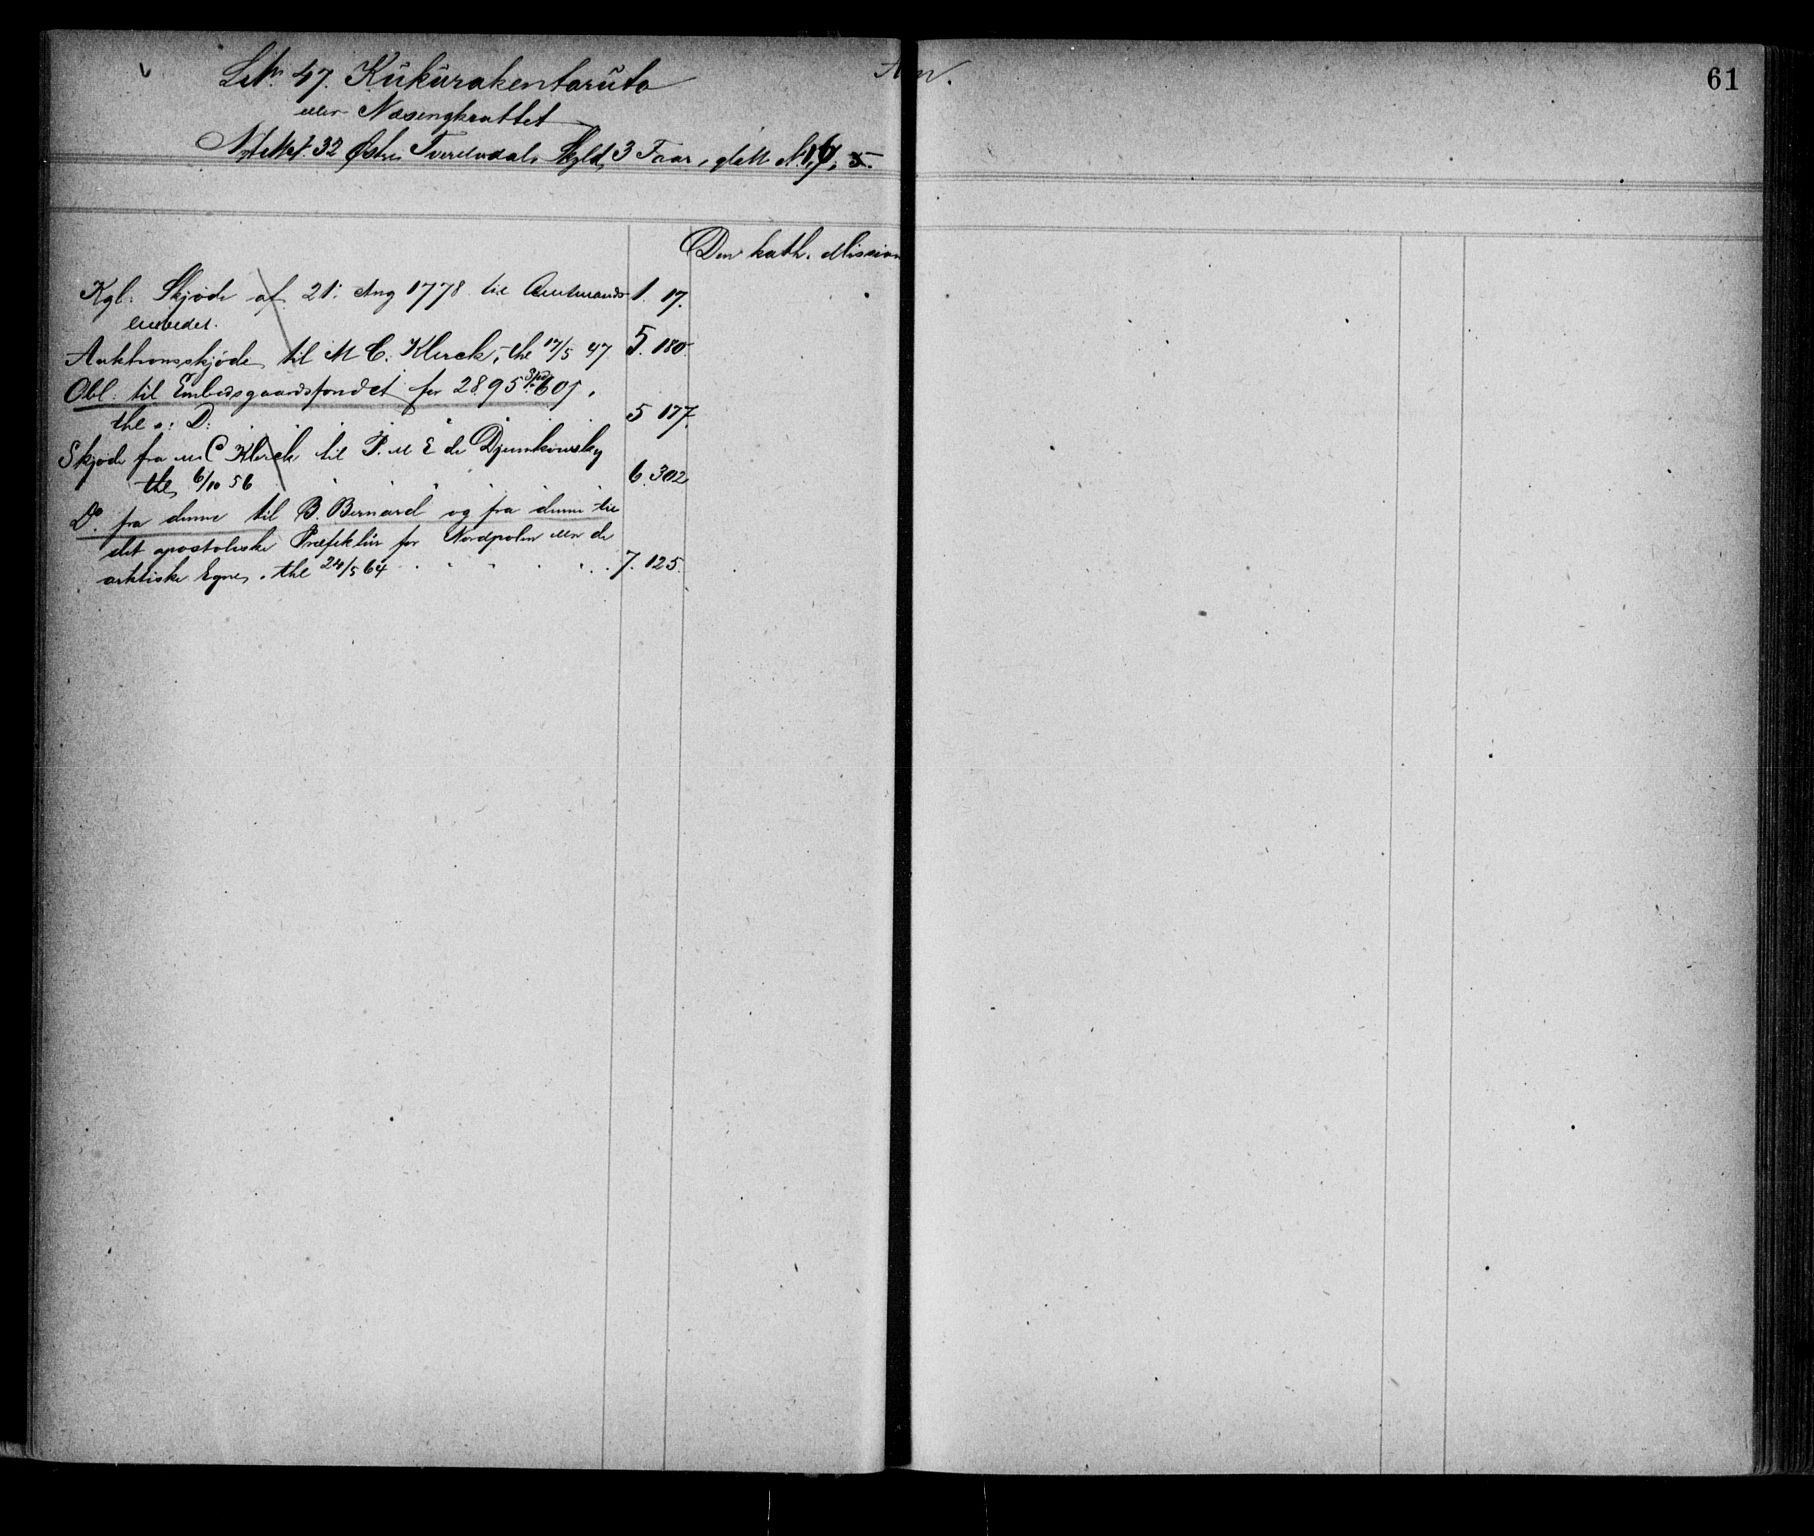 Litr. 47. Kükürakentarüto
eller Næsengkrattet
Østre Tverelvdal, Skyld, 3 Faar,
61
Den kath. Mission
Kgl: Skjøde af 21: Aug 1778 til Amtmands- 1. 17.
embedet.
Auktionsskjøde til M C. Klerck, thl 17/5 47 5. 180.
Obl: til Embedsgaardsfondet for 2895 Spd 60 s,
thl s: D: 5 177.
Skjøde fra M C Klerck til P. M E de Djunkowsky
thl, 6/10 56 6. 302
Do fra denne til B. Bernard og fra denne til
det apostoliske Præfektür for Nordpolen eller de
arktiske Egne, thl 24/5 64 7. 125.